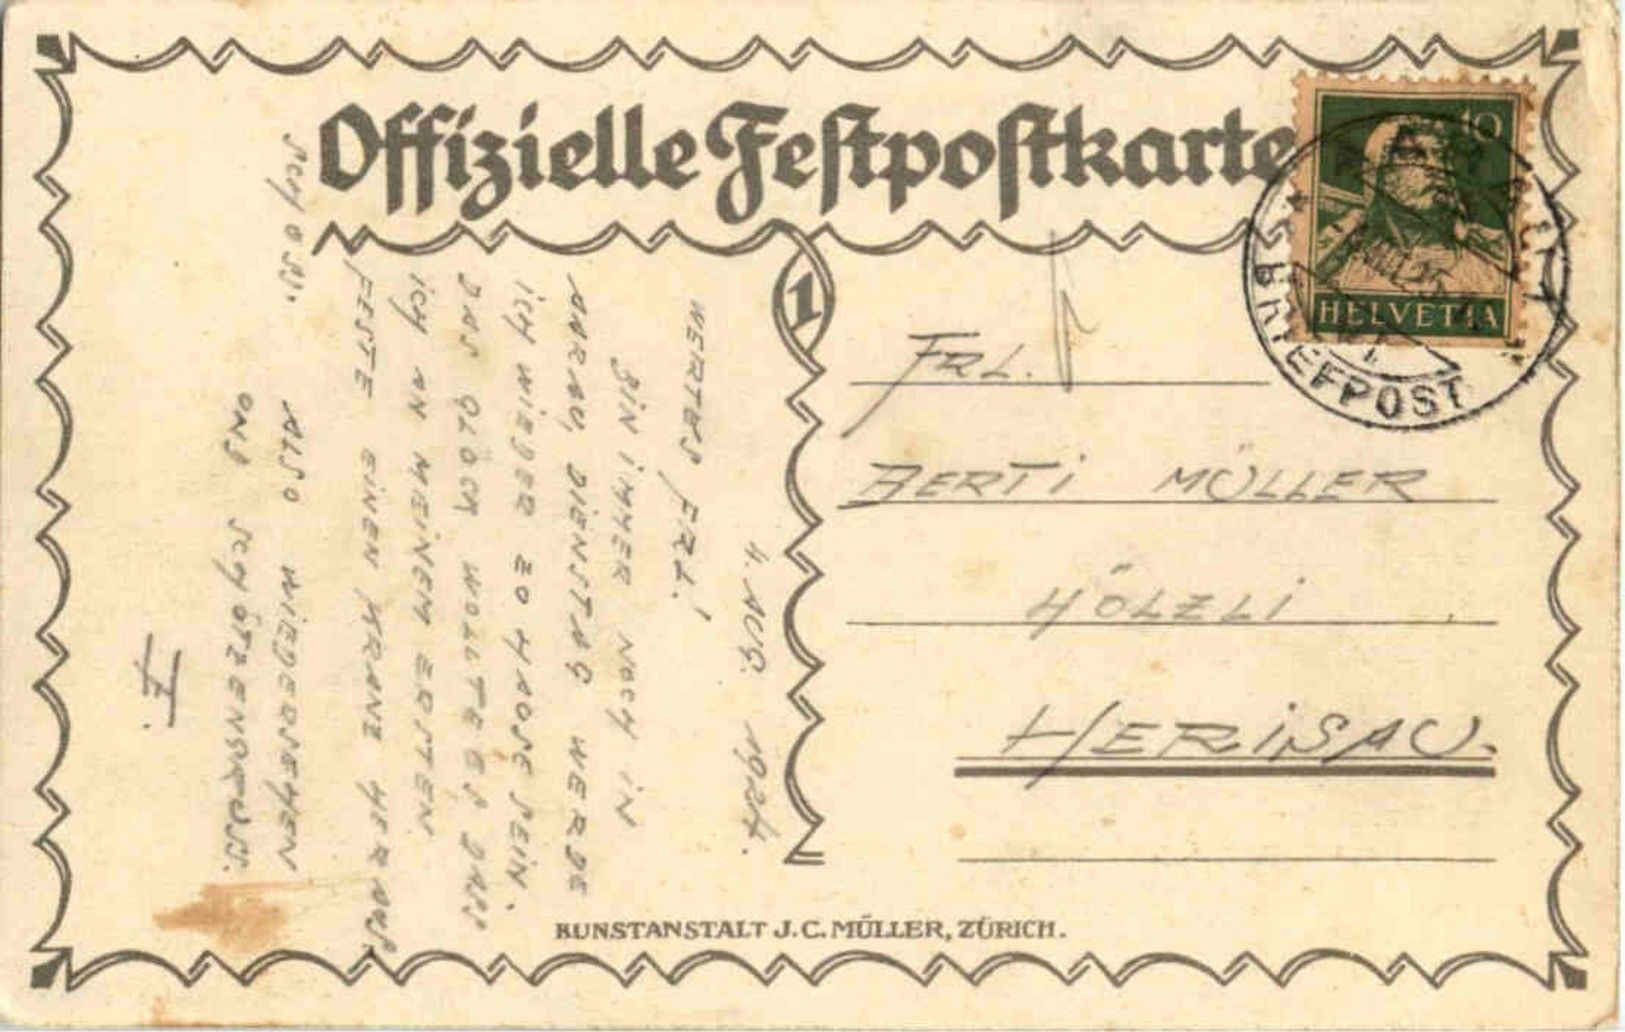 Offizielle Festpostkarte
10
HELVETIA
AARAU
BRIEFPOST
1
FRL.
BERTI MÜLLER
HÖLZLI
HERISAU.
4. AUG. 1924.
WERTES FRL.!
BIN IMMER NOCH IN
AARAU, DIENSTAG WERDE
ICH WIEDER ZU HAUSE SEIN.
DAS GLÜCK WOLLTE ES DASS
ICH AN MEINEM ERSTEN
FESTE EINEN KRANZ HERAUS
SCHOSS.
ALSO WIEDERSEHEN
UND SCHÜTZENGRUSS.
KUNSTANSTALT J. C. MÜLLER, ZÜRICH.